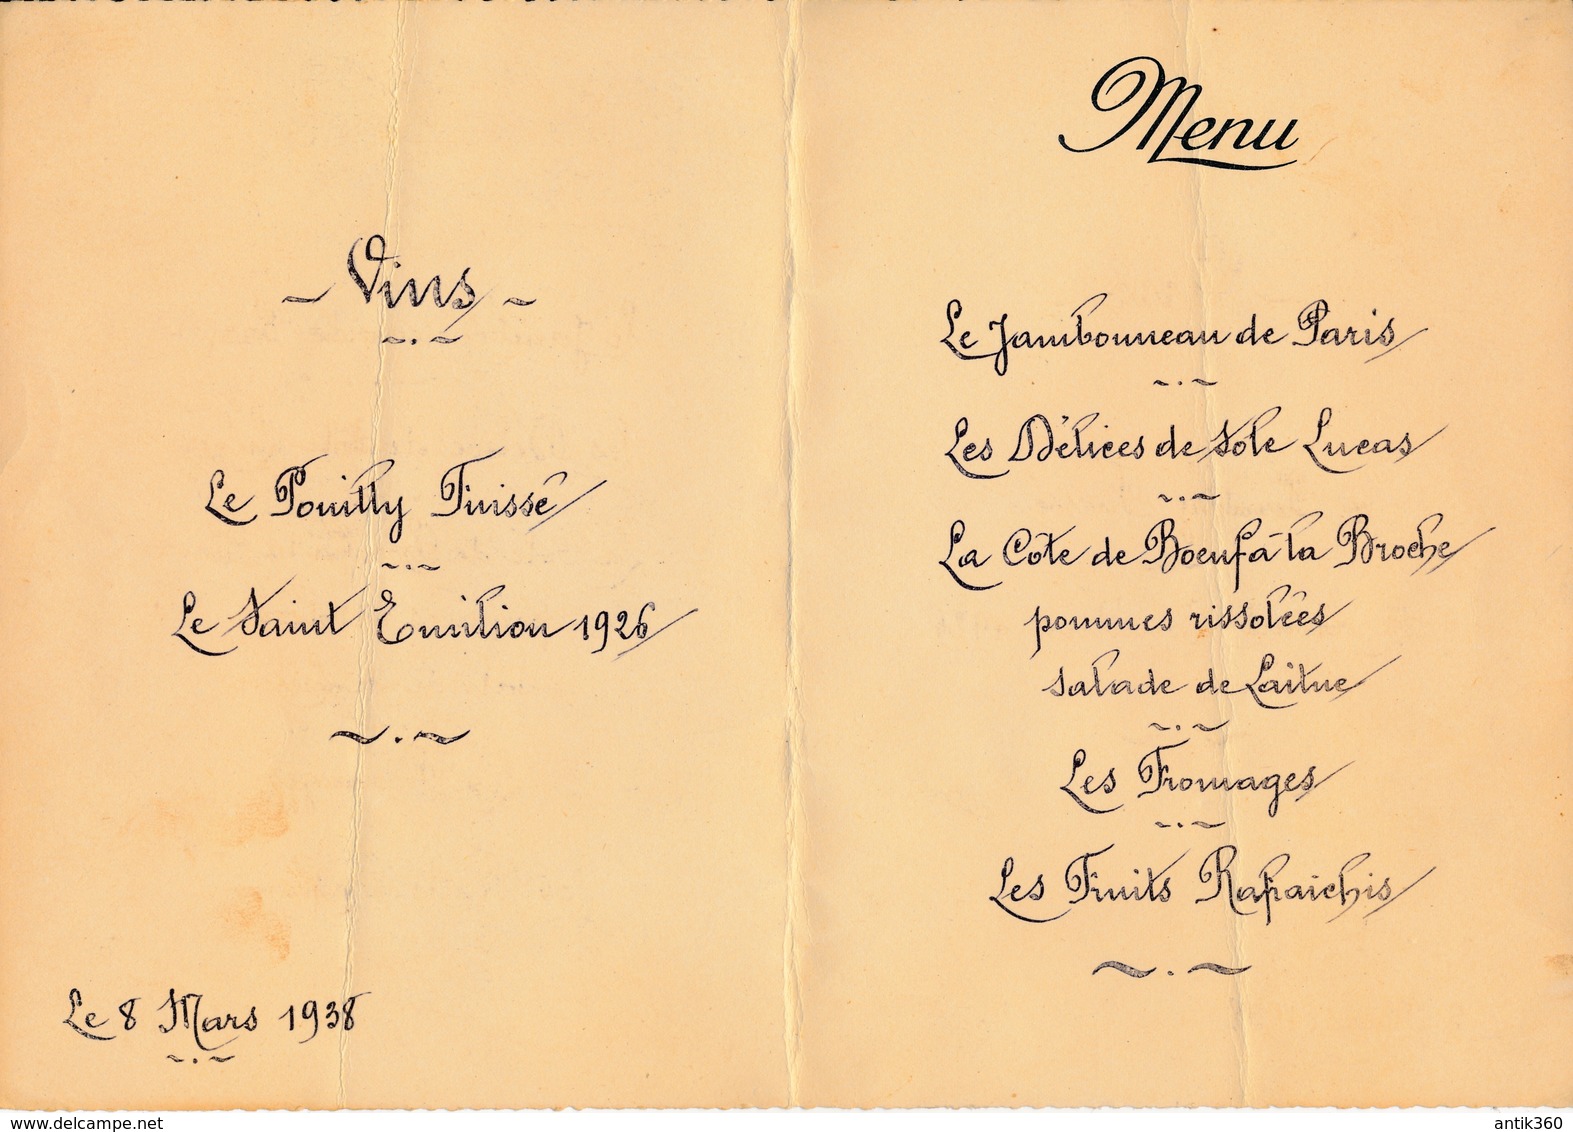 Vins
Le Pouilly Fuissé
Le Saint Emilion 1926
Le 8 Mars 1938
Menu
Le Jambonneau de Paris
Les Délices de Sole Lucas
La Côte de Boeuf à la Broche
pommes rissolées
salade de Laitue
Les Fromages
Les Fruits Rafraichis
delcampe.net
antik360